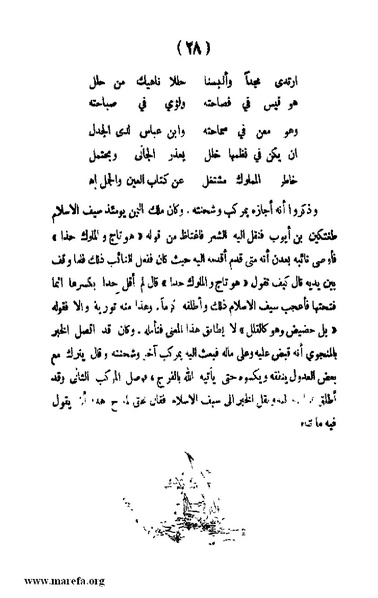 ( ٢٨ )
ارتدى مجداً وألبسنا حللا ناهيك من حلل
هو قيس في فصاحته ولؤي في صباحته
وهو معن في سماحته وابن عباس لدى الجدل
ان يكن في نظمها خلل يعذر الجانى ويحتمل
خاطر المملوك مشتغل عن كتاب العين والجمل إه
وذكروا أنه أجازه بمركب وشحنته . وكان ملك اليمن يومئذ سيف الاسلام
طغتكين بن أيوب فنقل اليه الشعر فاغتاظ من قوله « هو تاج والملوك حذا »
فأوصى نائبه بعدن أنه متى قدم أقدمه اليه حيث كان ففعل النائب ذلك فلما وقف
بين يديه قال كيف تقول « هو تاج والملوك حدا » قال لم أقل حدا بكسرها انما
فتحتها فأعجب سيف الاسلام ذلك وأطلقه كرماً . وهذا منه تورية والا فقوله
« بل حضيض وهو كالقلل » لا يطابق هذا المعنى فتأمله . وكان قد اتصل الخبر
بالمنجوي أنه قبض عليه وعلى ماله فبعث اليه بمركب آخر وشحنته وقال يترك مع
بعض العدول ينفقه ويكسوه حتى يأتيه الله بالفرج ، فوصل المركب الثانى وقد
أطلق ونقل الخبر الى سيف الاسلام فقال بحق هذا أن يقول
فيه ما شاء
www.marefa.org